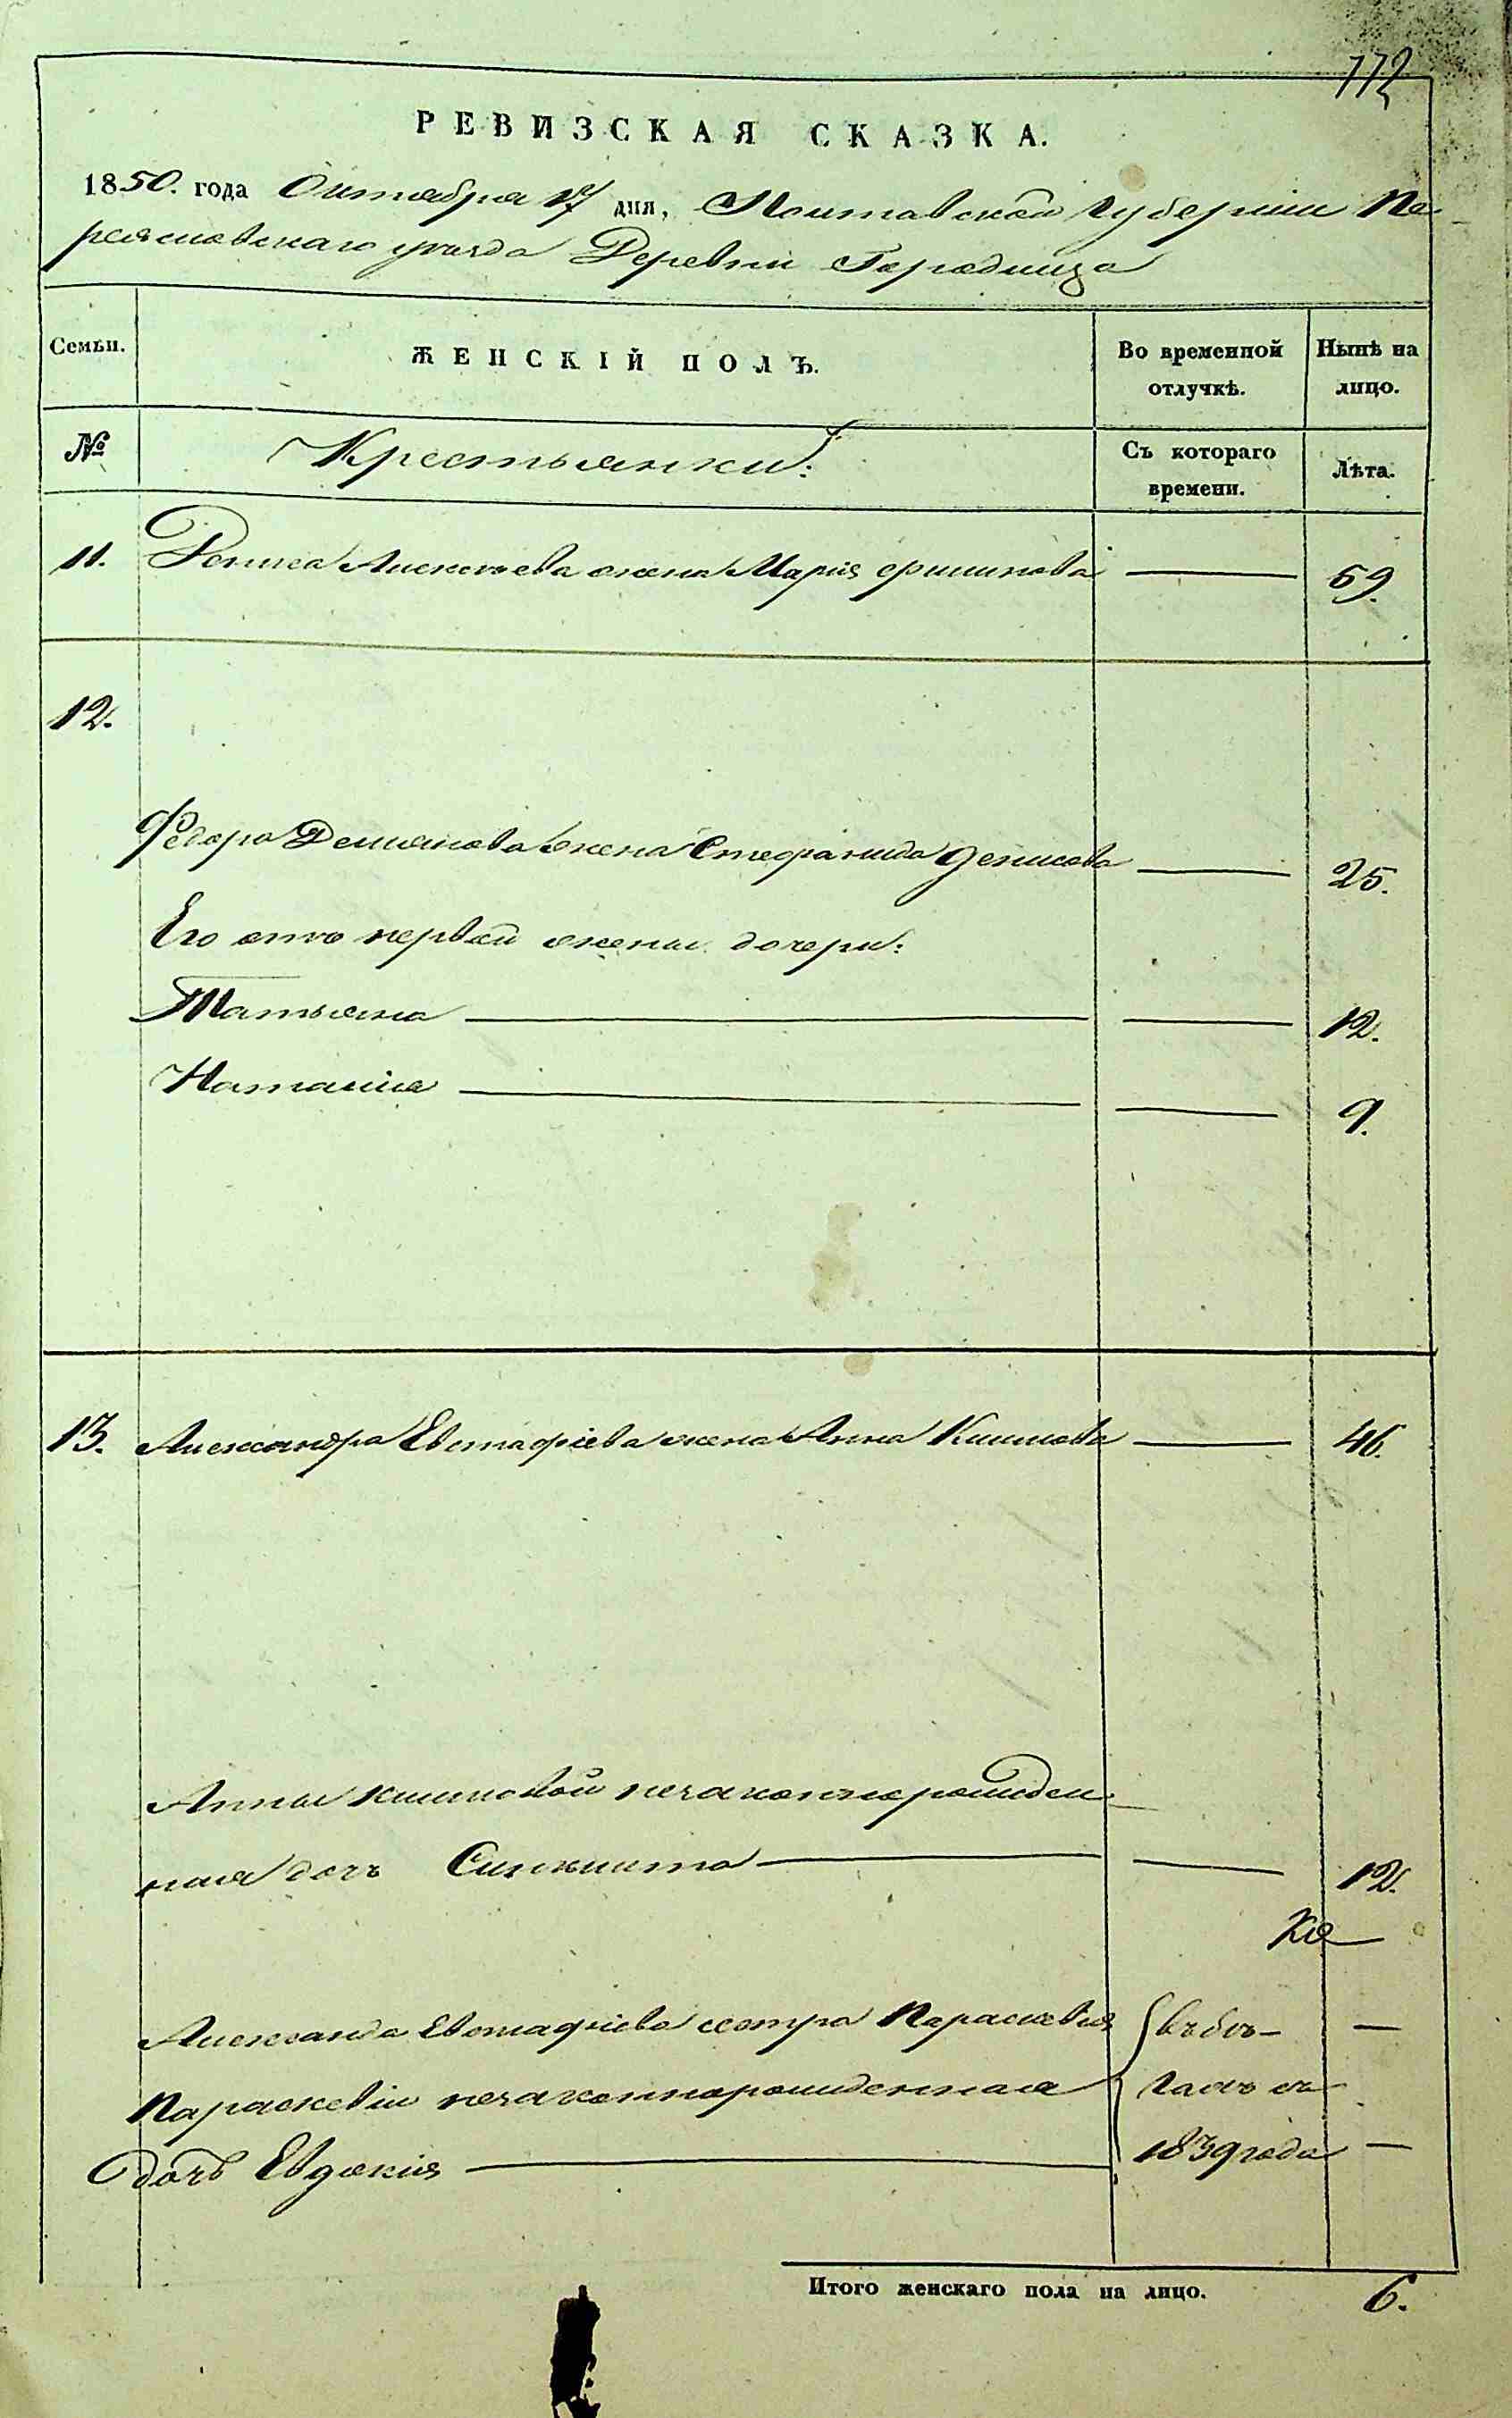 112
РЕВИЗСКАЯ СКАЗКА.
1850. года Октября 17 дня, Полтавской Губернии Пе-
реяславскаго уѣзда Деревни Городища
Семьи.
ЖЕНСКІЙ ПОЛЪ.
Во временной отлучкѣ.
Нынѣ на лицо.
№
Крестьянки:
Съ котораго времени.
Лѣта.
11. Дениса Алексѣева жена Марія Филипова — 59.
12.
Федора Демьянова жена Стефанида Денисова — 25.
Его отъ первой жены дочери:
Татьяна — 12.
Наталія — 9.
13. Александра Евстафіева жена Анна Климова — 46.
Анны Климовой незаконнорожден-
ная дочь — 12.
Александра Евстафіева сестра Параскевія въ бѣ- —
Параскевіи незаконнорожденная гахъ съ
дочь Евдокія 1839 года —
Итого женскаго пола на лицо. 6.